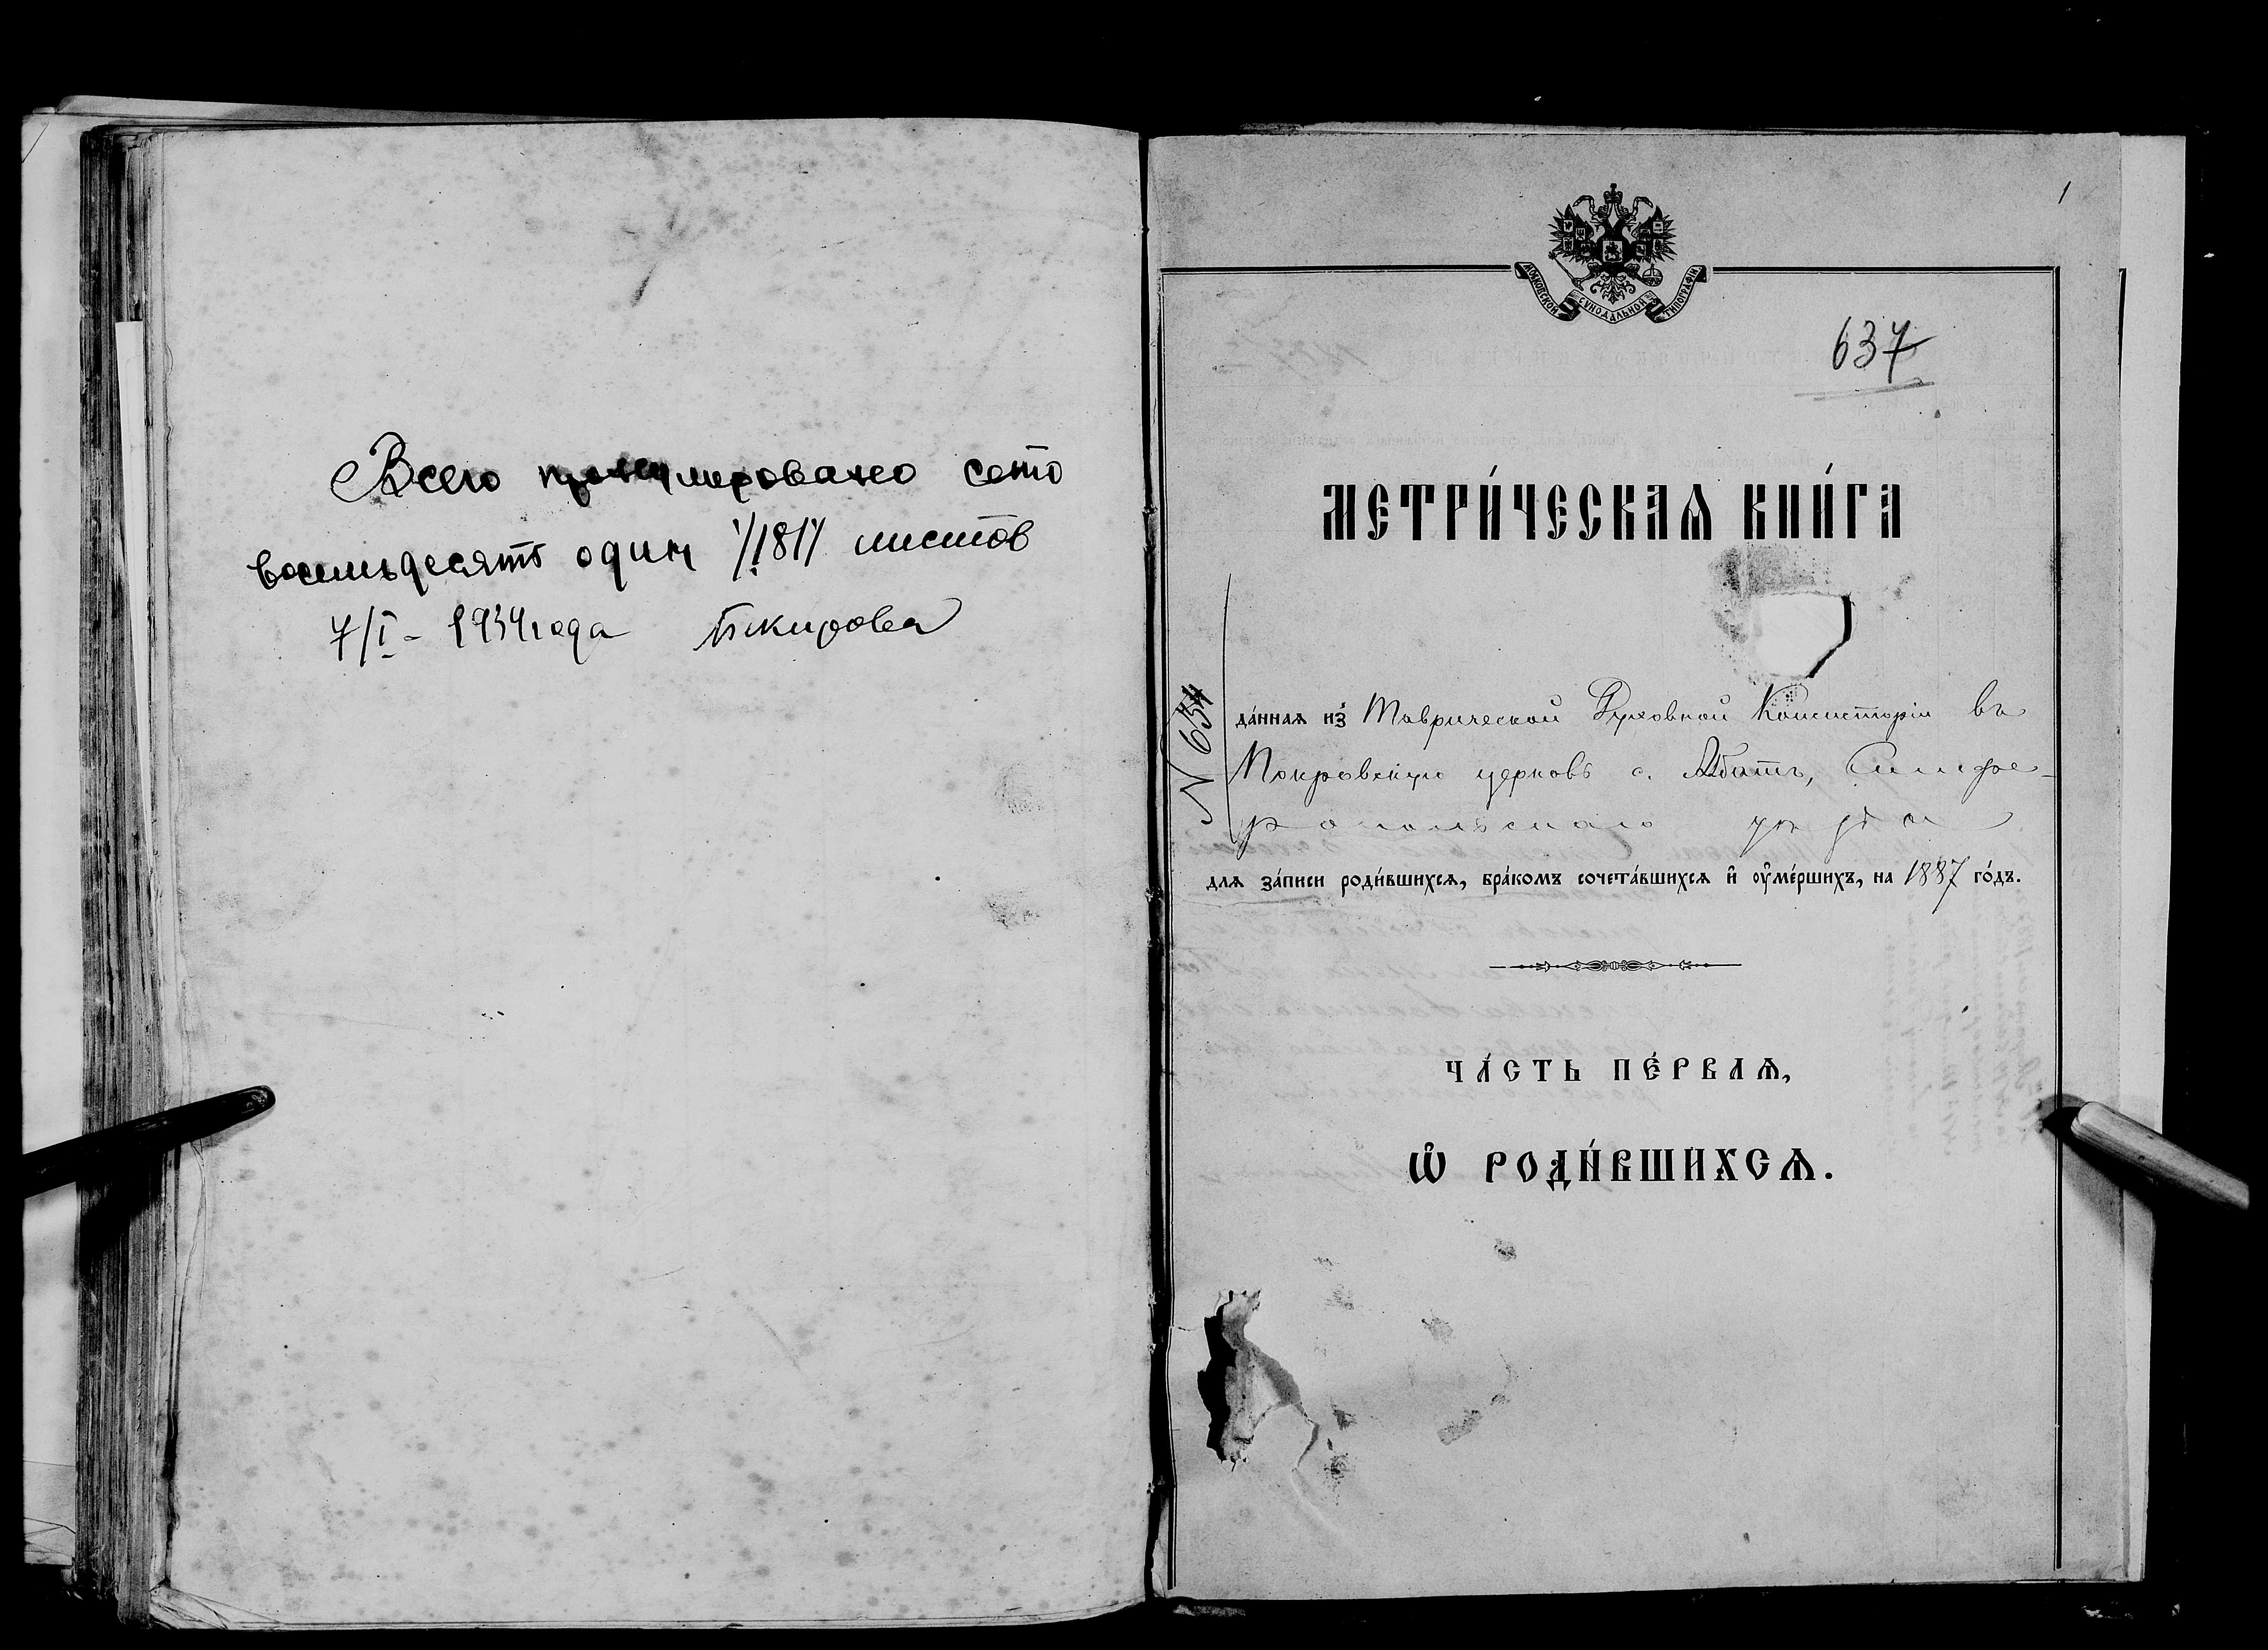 Всего пронумеровано сто
восемьдесять один /181/ листов
7/I - 1934 года Бекирова
1
МОСКОВСКОЙ СѴНОДАЛЬНОЙ ТИПОГРАФІИ
637
МЕТРИ́ЧЕСКАѦ КНИ́ГА
N 634
да́ннаѧ из̾ Таврической Духовной Консисторіи въ
Покровскую церковь с. Абатъ, Симфе-
ропольскаго уѣзда
для за́писи роди́вшихсѧ, бра́комъ сочета́вшихсѧ и҆ оу҆ме́ршихъ, на 1887 го́дъ.
ЧА́СТЬ ПЕ́РВАѦ,
Ѡ҆ РОДИ́ВШИХСѦ.